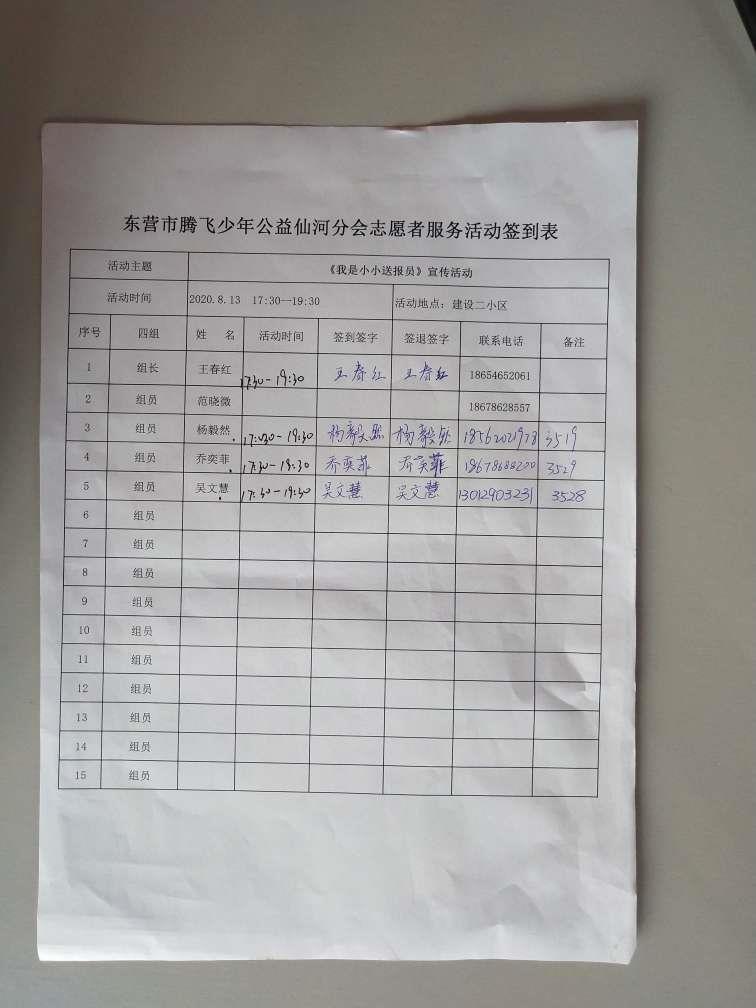 东营市腾飞少年公益仙河分会志愿者服务活动签到表
活动主题 《我是小小送报员》宣传活动
活动时间 2020.8.13 17:30—19:30 活动地点：建设二小区
序号 四组 姓 名 活动时间 签到签字 签退签字 联系电话 备注
1 组长 王春红 17:30-19:30 王春红 王春红 18654652061
2 组员 范晓微 18678628557
3 组员 杨毅然 17:30-19:30 杨毅然 杨毅然 18562021978 3519
4 组员 乔奕菲 17:30-19:30 乔奕菲 乔奕菲 18678688200 3529
5 组员 吴文慧 17:30-19:30 吴文慧 吴文慧 13012903231 3528
6 组员
7 组员
8 组员
9 组员
10 组员
11 组员
12 组员
13 组员
14 组员
15 组员